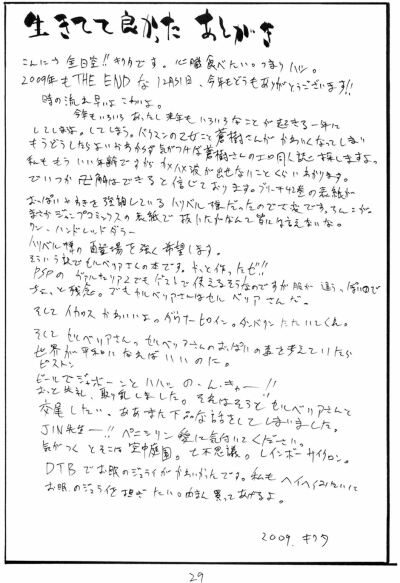 生きてて良かった あとがき
こんにちは 全日空!! キクタです。心臓食べたい。つまりハツ。
2009年もTHE ENDな12月31日、今年もどうもありがとうございます!!
時の流れ早いよこわいよ。
今年もいろいろあったし来年もいろいろなことが起きる一年に
してしまう。バクマンの乙女こと蒼樹さんがかわいくなってしまい
もうどうしたらよいかわからず気がつけば蒼樹さんのエロ同人誌を探しますよっ
私ももういい年齢ですがカメハメ波が出ないことくらいわかります。
でいつか卍解はできると信じております。ブリーチ42巻の表紙が
おっぱいとわきを強調しているハリベル様だったので大変です。
まさかジャンプコミックスの表紙で抜いたなんて皆には言えないな。
ワン・ハンドレッドダラー
ハリベル様の再登場を強く希望します。
そういう訳でセルベリアさんの本です。やっと作ったぜ!!
PSPのヴァルキュリア2でもゲストで使えるそうなのですが服が違う
ちょっと残念。でもセルベリアさんはセルベリアさんだ。
そして イカロスかわいいよ。ダウナーヒロイン。タンバリンたたいてくん。
そして セルベリアさんっセルベリアさんのおっぱいの事を考えていたら
世界が平和になればいいのに。
ピストン
ビールでジャボーンとハハッ のんきゃー!!
おっと失礼、取り乱しました。それはそうとセルベリアさんと
交尾したい、ああまた下品な話をしてしまいました。
JIN先生ー!! ペニシリン 愛に気付いてください。
気がつくとそこは空中庭園。七不思議。レインボーサイクロン。
DTBでお眠のジュライがかわいかったです。私もヘイヘイみたいに
お眠のジュライを担ぎたい。肉まん買ってあげるよ。
2009. キクタ
29